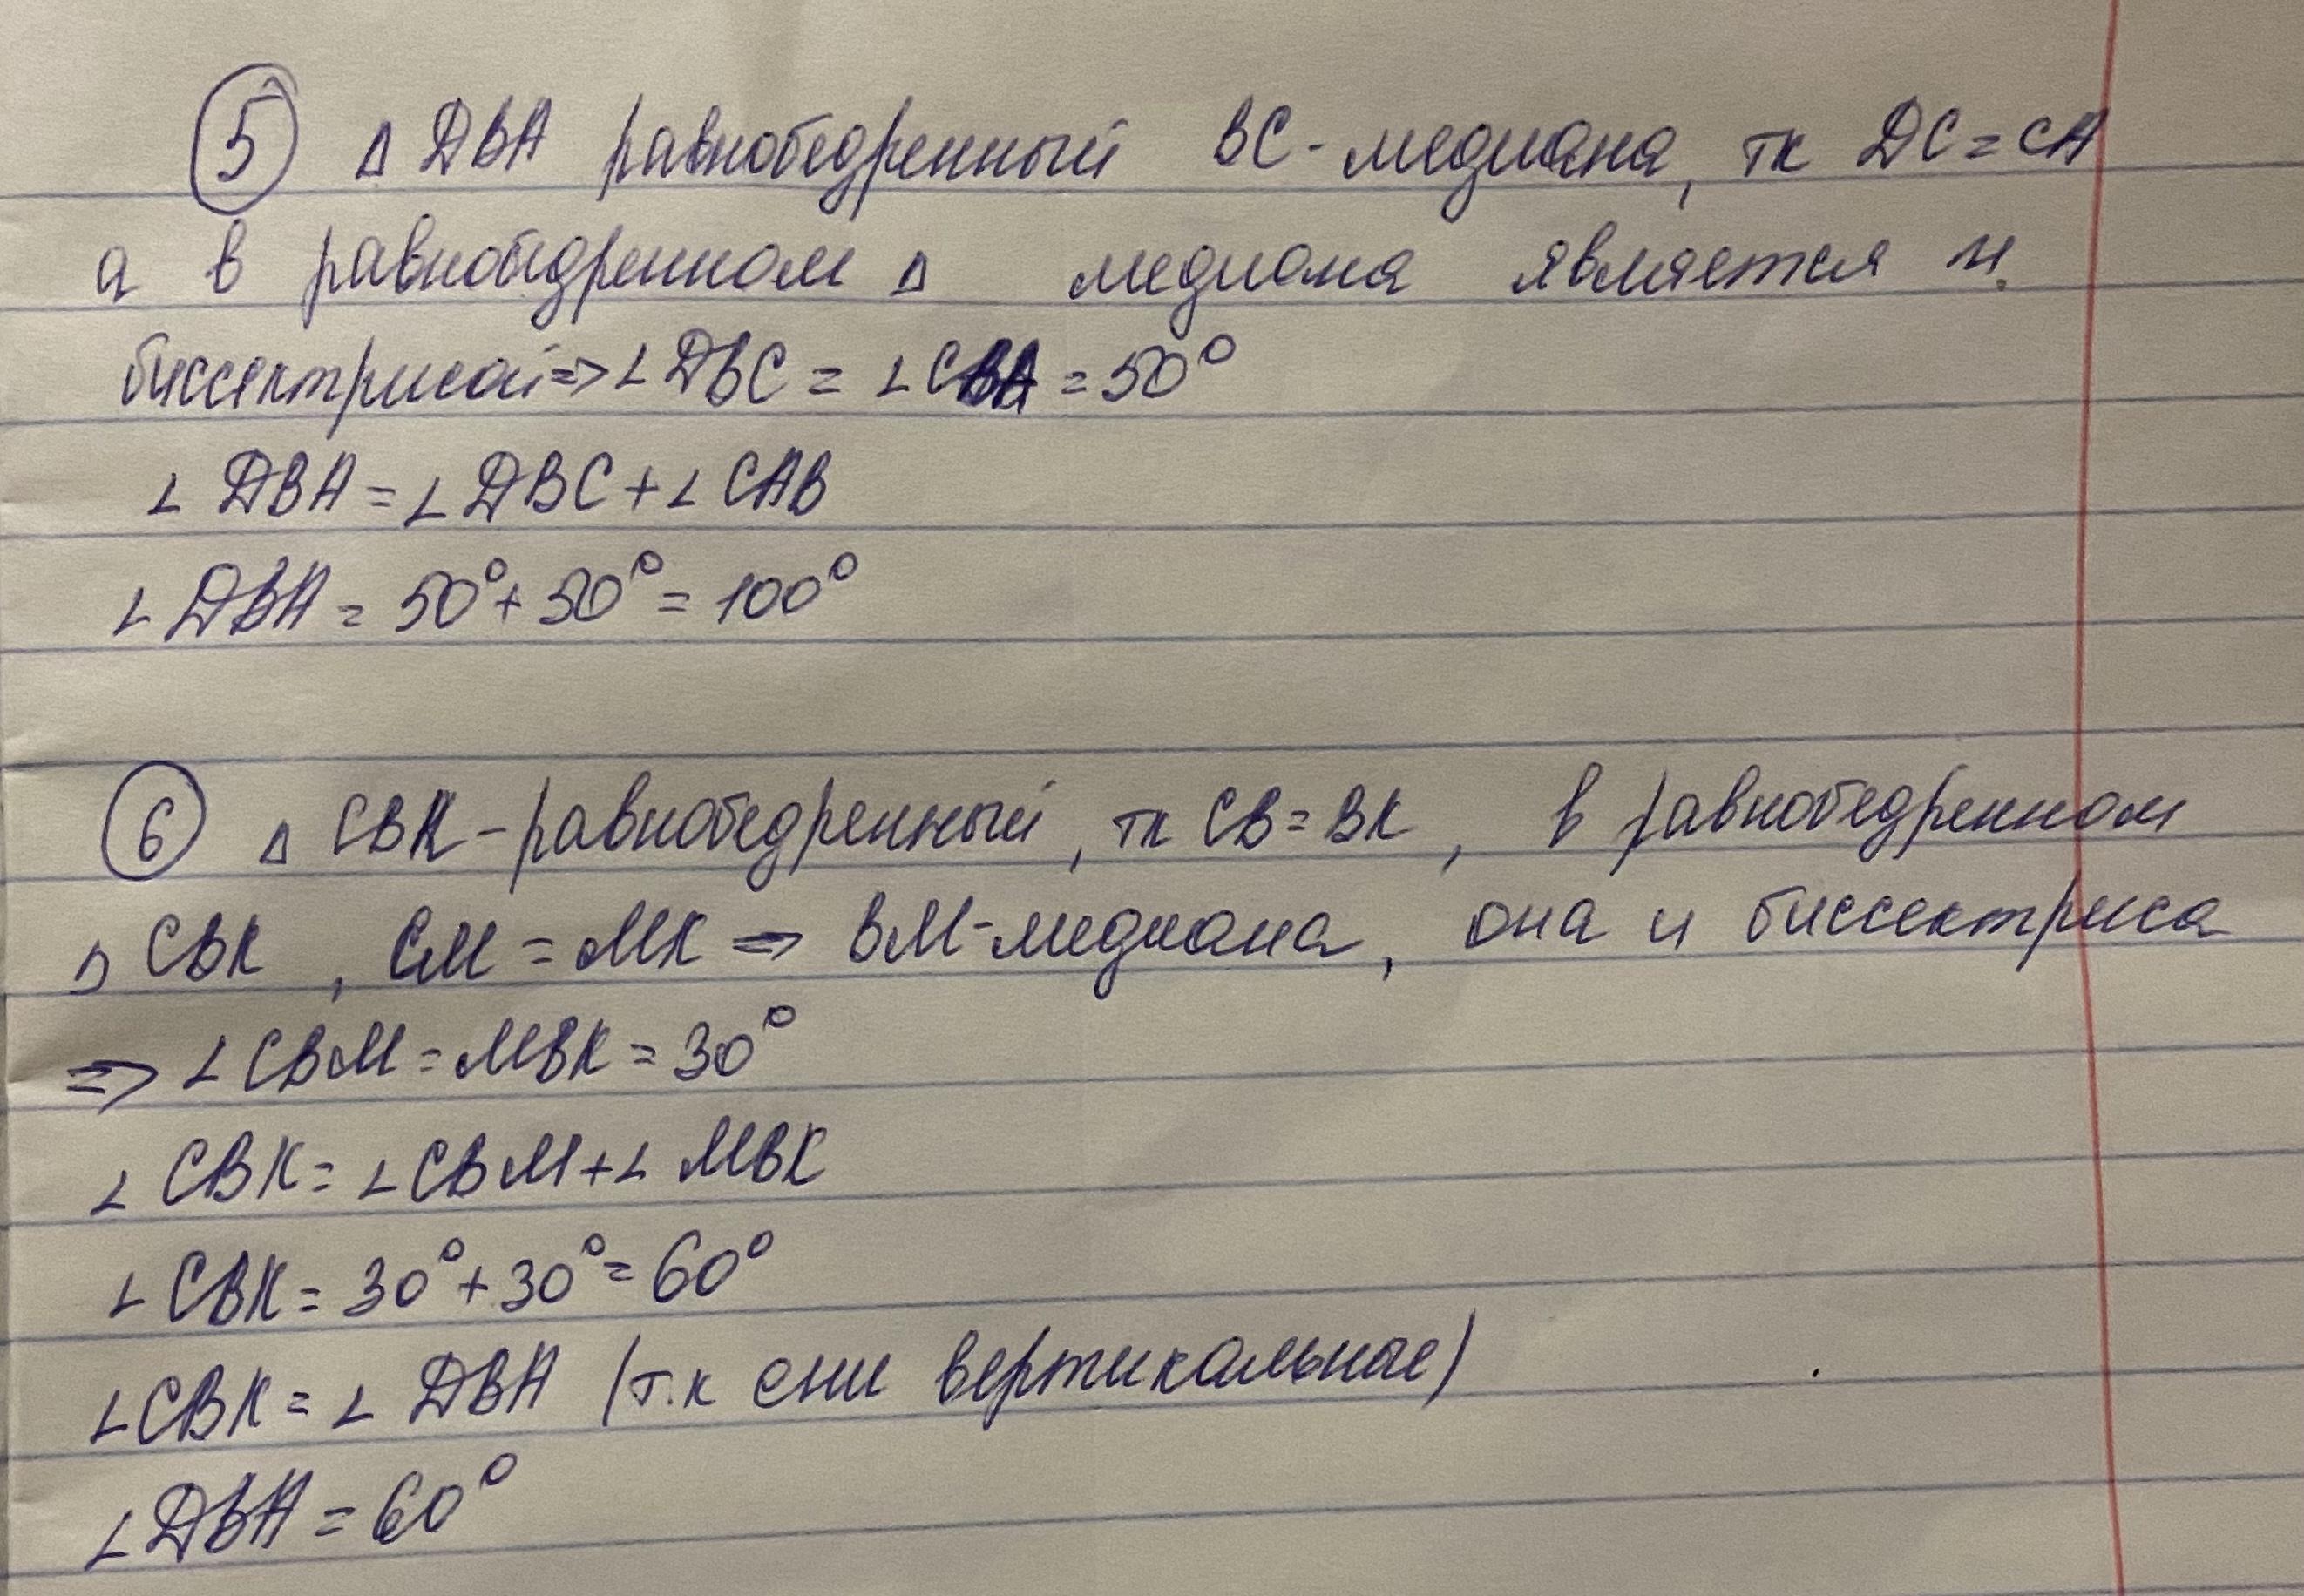 5 Δ DBA равнобедренный BC - медиана, тк DC = CA
а в равнобедренном Δ медиана является и
биссектрисой => ∠DBC = ∠CBA = 50°
∠DBA = ∠DBC + ∠CAB
∠DBA = 50° + 50° = 100°
6 Δ CBK - равнобедренный, тк CB = BK, в равнобедренном
Δ CBK, CM = MK => BM - медиана, она и биссектриса
=> ∠CBM = MBK = 30°
∠CBK = ∠CBM + ∠MBK
∠CBK = 30° + 30° = 60°
∠CBK = ∠DBA (т.к они вертикальные)
∠DBA = 60°